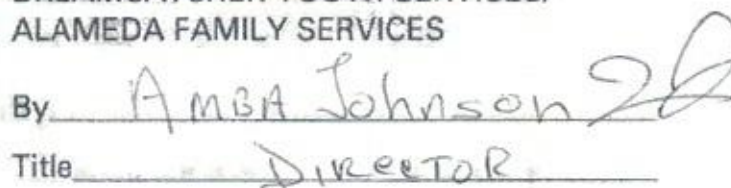 ALAMEDA FAMILY SERVICES
By AMBA Johnson
Title DIRECTOR